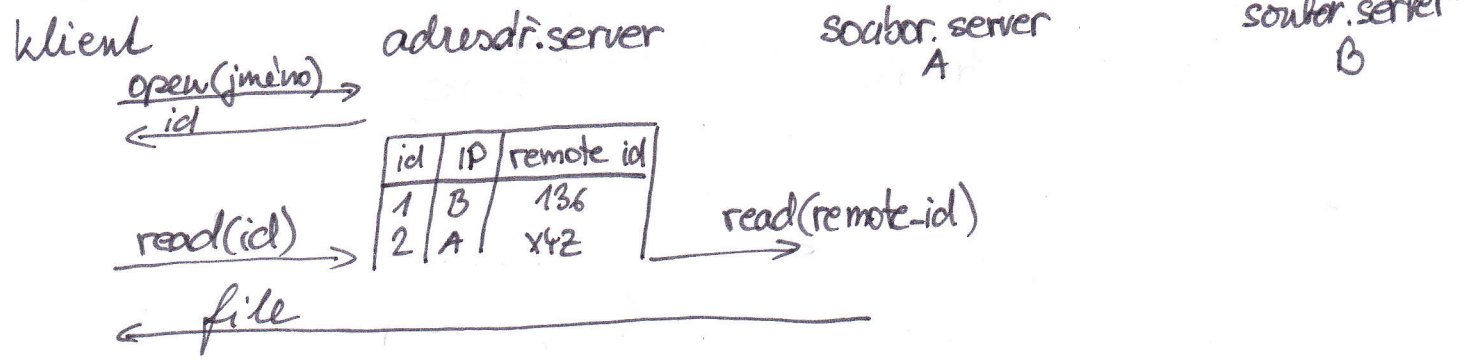 klient adresář.server soubor.server soubor.server
A B
open(jméno)
id
id IP remote id
1 B 136
read(id) 2 A XYZ read(remote_id)
file